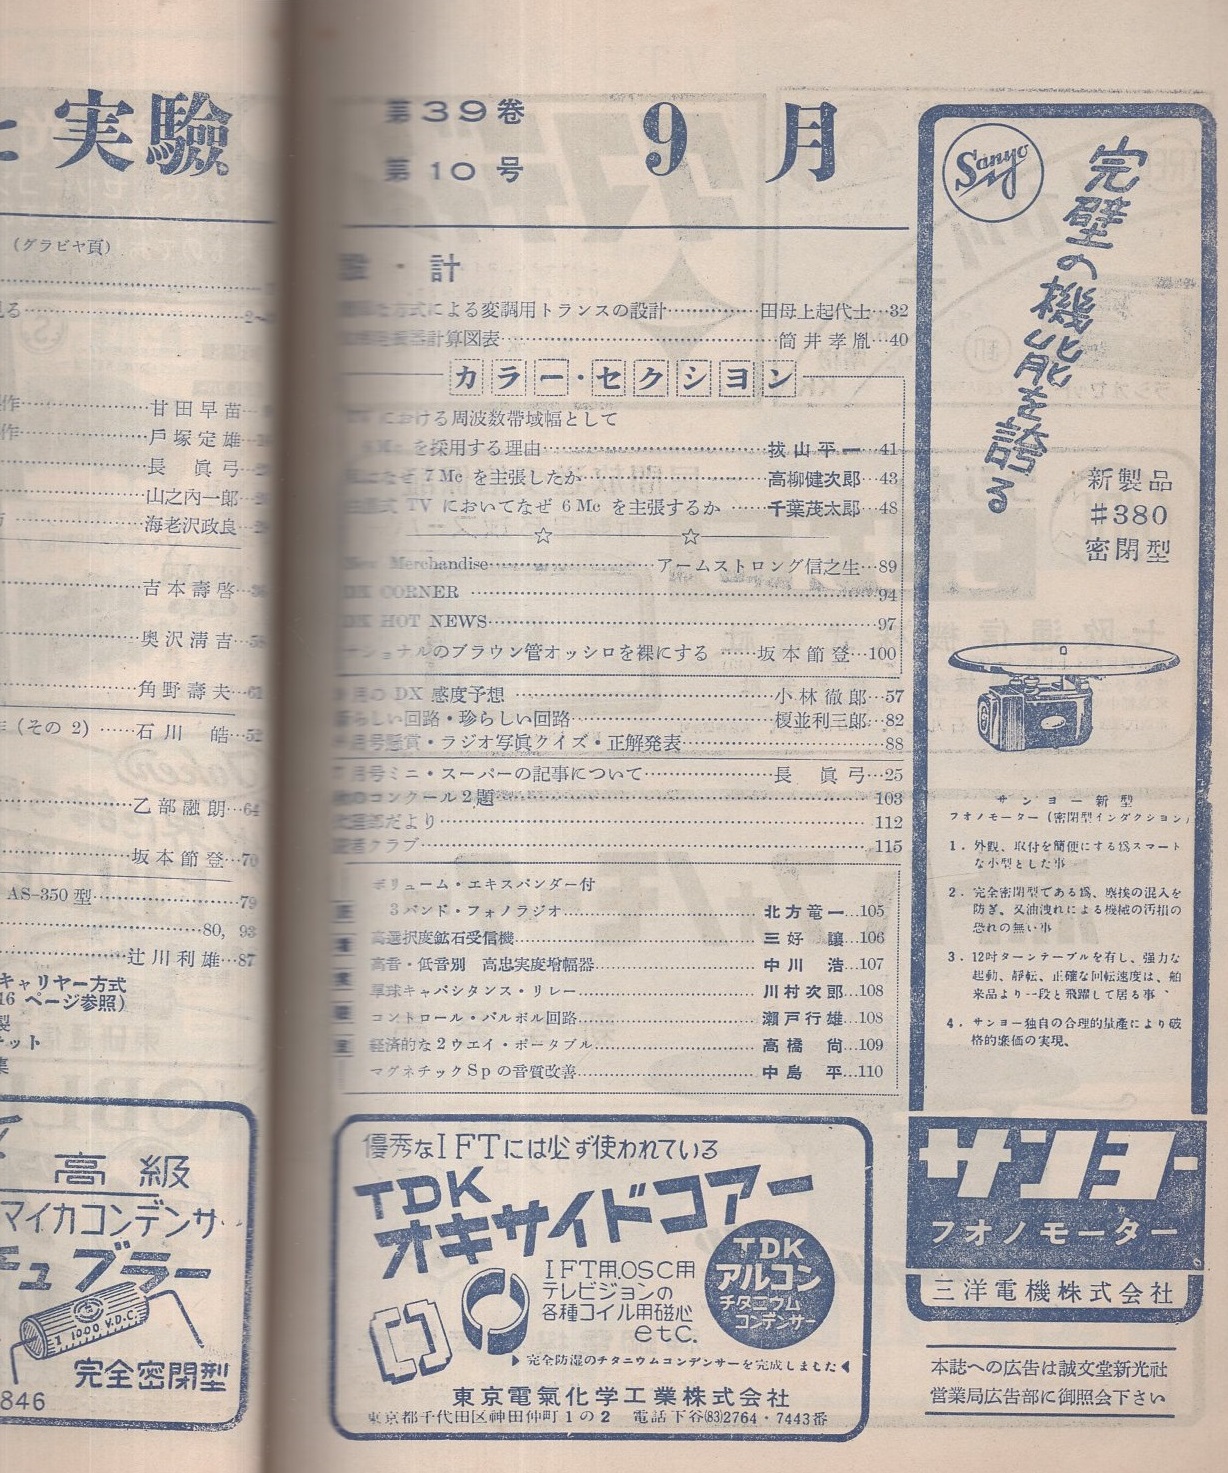 と 実驗
(グラビヤ頁)
見る
作 甘田早苗
作 戶塚定雄
長 眞弓
山之內一郎
海老沢政良
吉本壽啓
奥沢淸吉
角野壽夫 61
(その 2) 石川 皓 52
乙部融朗 64
坂本節登 70
AS-350 型 79
80, 93
辻川利雄 87
キャリヤー方式
16 ページ参照)
高級
マイカコンデンサ
チュブラー
I 1000 V.D.C
完全密閉型
846
第39巻
第10号
9月
設・計
方式による変調用トランスの設計 田母上起代士 32
計算図表 筒井孝胤 40
カラー・セクション
における周波数帯域幅として
を採用する理由 抜山平一 41
なぜ 7 Mc を主張したか 高柳健次郎 43
TV においてなぜ 6 Mc を主張するか 千葉茂太郎 48
New Merchandise アームストロング信之生 89
DX CORNER 94
DX HOT NEWS 97
ナショナルのブラウン管オッシロを裸にする 坂本節登 100
月の DX 感度予想 小林徹郎 57
新らしい回路・珍らしい回路 榎並利三郎 82
月号懸賞・ラジオ写眞クイズ・正解発表 88
月号ミニ・スーパーの記事について 長 眞弓 25
のコンクール2題 103
だより 112
読者クラブ 115
ボリューム・エキスパンダー付
3バンド・フォノラジオ 北方竜一 105
高選択度鉱石受信機 三好 讓 106
高音・低音別 高忠実度増幅器 中川 浩 107
單球キャパシタンス・リレー 川村次郎 108
コントロール・バルボル回路 瀬戸行雄 108
経済的な2ウエイ・ポータブル 高橋 尙 109
マグネチックSpの音質改善 中島 平 110
優秀なIFTには必ず使われている
TDK
オキサイドコアー
IFT用.OSC用
テレビジョンの
各種コイル用磁心
etc.
TDK
アルコン
チタニウム
コンデンサー
完全防湿のチタニウムコンデンサーを完成しました
東京電氣化学工業株式会社
東京都千代田区神田仲町1の2 電話下谷(83)2764・7443番
Sanyo
完璧の機能を誇る
新製品
#380
密閉型
サンヨー新型
フオノモーター(密閉型インダクション)
1. 外観、取付を簡便にする爲スマート
な小型とした事
2. 完全密閉型である爲、塵挨の混入を
防ぎ、又油洩れによる機械の汚損の
恐れの無い事
3. 12吋ターンテーブルを有し、強力な
起動、靜転、正確な回転速度は、舶
来品より一段と飛躍して居る事、
4. サンヨー独自の合理的量產により破
格的楽価の実現、
サンヨー
フオノモーター
三洋電機株式会社
本誌への広告は誠文堂新光社
営業局広告部に御照会下さい